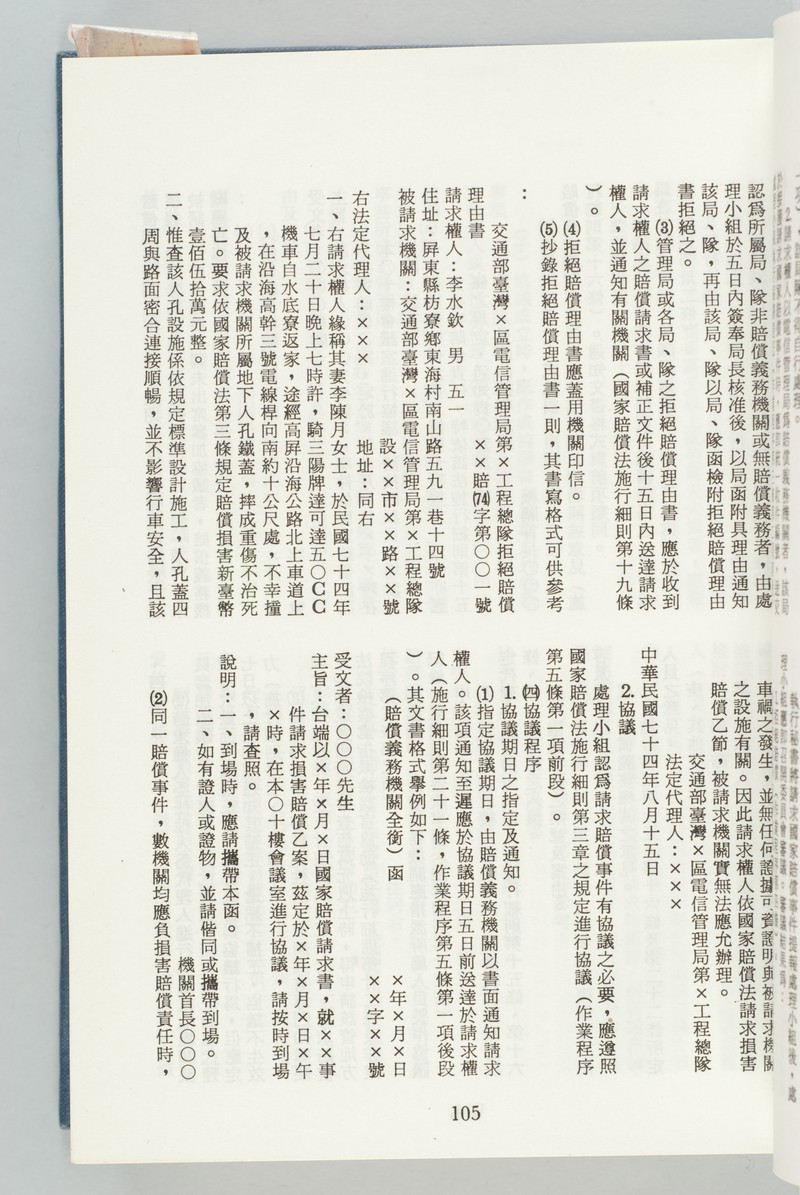 認為所屬局、隊非賠償義務機關或無賠償義務者，由處
理小組於五日內簽奉局長核准後，以局函附具理由通知
該局、隊，再由該局、隊以局、隊函檢附拒絕賠償理由
書拒絕之。
⑶管理局或各局、隊之拒絕賠償理由書，應於收到
請求權人之賠償請求書或補正文件後十五日內送達請求
權人，並通知有關機關（國家賠償法施行細則第十九條
）。
⑷拒絕賠償理由書應蓋用機關印信。
⑸抄錄拒絕賠償理由書一則，其書寫格式可供參考
：
交通部臺灣×區電信管理局第×工程總隊拒絕賠償
理由書　××賠⑺⑷字第〇〇一號
請求權人：李水欽　男　五一
住址：屏東縣枋寮鄉東海村南山路五九一巷十四號
被請求機關：交通部臺灣×區電信管理局第×工程總隊
設××市××路××號
右法定代理人：×××　地址：同右
一、右請求權人緣稱其妻李陳月女士，於民國七十四年
七月二十日晚上七時許，騎三陽牌達可達五〇ＣＣ
機車自水底寮返家，途經高屏沿海公路北上車道上
，在沿海高幹三號電線桿向南約十公尺處，不幸撞
及被請求機關所屬地下人孔鐵蓋，摔成重傷不治死
亡。要求依國家賠償法第三條規定賠償損害新臺幣
壹佰伍拾萬元整。
二、惟查該人孔設施係依規定標準設計施工，人孔蓋四
周與路面密合連接順暢，並不影響行車安全，且該
車禍之發生，並無任何證據可資證明與被請求機關
之設施有關。因此請求權人依國家賠償法請求損害
賠償乙節，被請求機關實無法應允辦理。
交通部臺灣×區電信管理局第×工程總隊
法定代理人：×××
中華民國七十四年八月十五日
2.協議
處理小組認為請求賠償事件有協議之必要，應遵照
國家賠償法施行細則第三章之規定進行協議（作業程序
第五條第一項前段）。
㈣協議程序
1.協議期日之指定及通知。
⑴指定協議期日，由賠償義務機關以書面通知請求
權人。該項通知至遲應於協議期日五日前送達於請求權
人（施行細則第二十一條，作業程序第五條第一項後段
）。其文書格式舉例如下：
（賠償義務機關全銜）函　×年×月×日
××字××號
受文者：〇〇〇先生
主旨：台端以×年×月×日國家賠償請求書，就××事
件請求損害賠償乙案，茲定於×年×月×日×午
×時，在本〇十樓會議室進行協議，請按時到場
，請查照。
說明：一、到場時，應請攜帶本函。
二、如有證人或證物，並請偕同或攜帶到場。
機關首長〇〇〇
⑵同一賠償事件，數機關均應負損害賠償責任時，
105